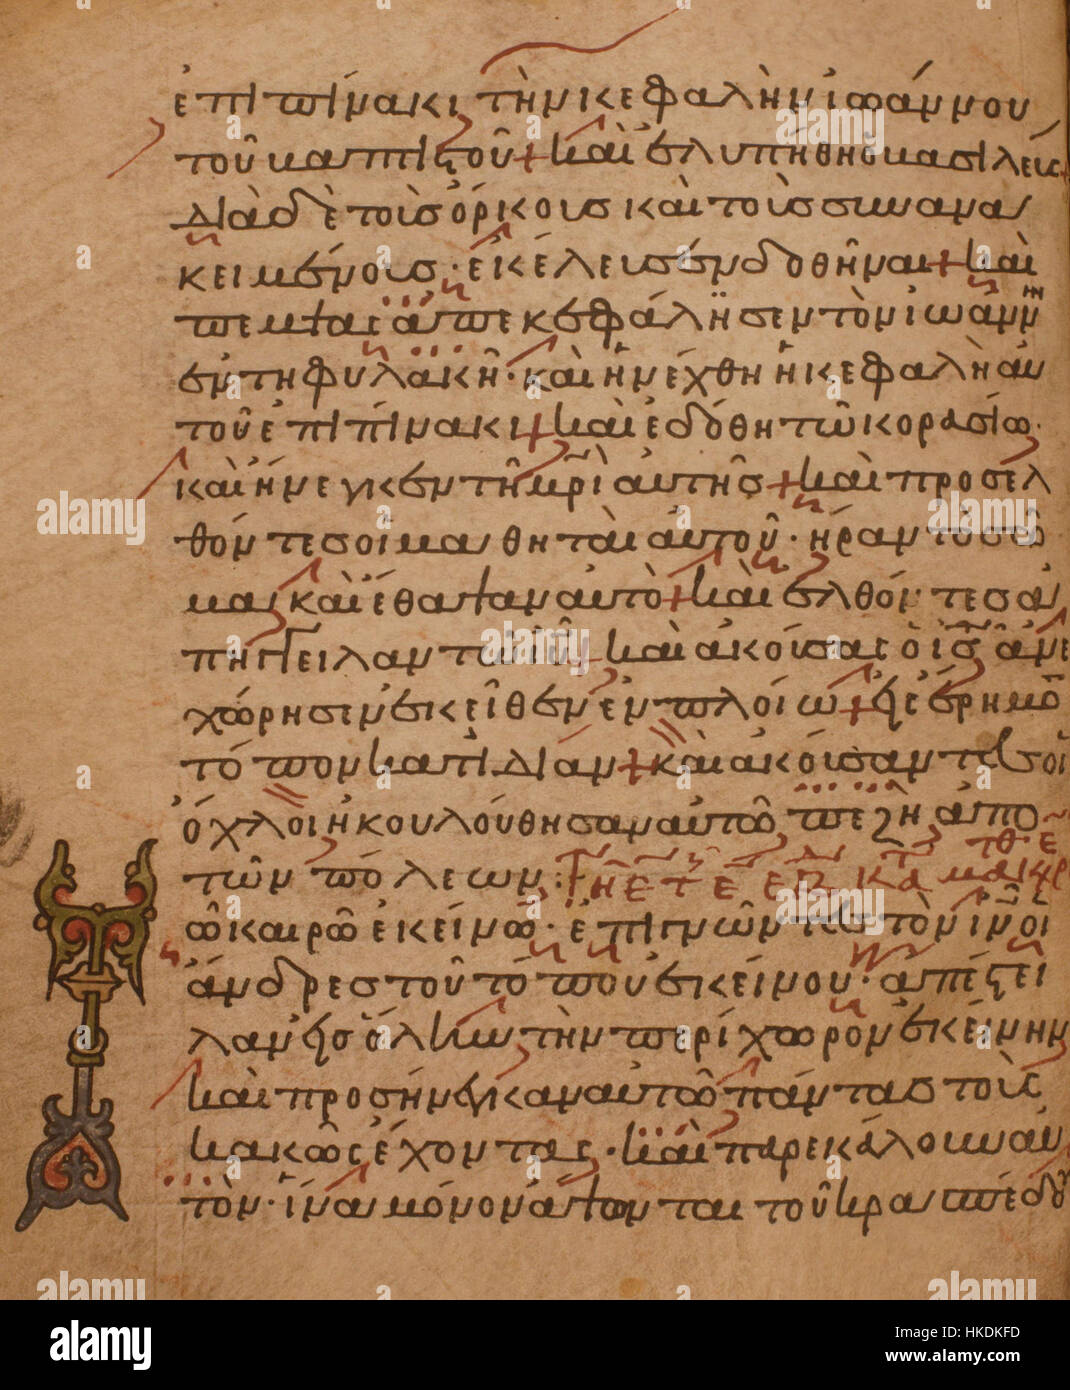 ἐπι πίνακι τὴν κεφαλὴν ἰωάννου
τοῦ βαπτιστοῦ + καὶ ἐλυπήθη ὁ βασιλεύς
διὰ δὲ τοὺς ὅρκους καὶ τοὺς συνανα
κειμένους · ἐκέλευσεν δοθῆναι + καὶ
πέμψας ἀπεκεφάλησεν τὸν ἰωάννην
ἐν τῇ φυλακῆ · καὶ ἠνέχθη ἡ κεφαλὴ αὐ
τοῦ ἐπι πίνακι + καὶ ἐδόθη τῶ κορασίω ·
καὶ ἤνεγκεν τῆ μρὶ αὐτῆς + καὶ προσελ
θόντες οἱ μαθηταὶ αὐτοῦ · ἦραν τὸ σῶ
μα καὶ ἔθαψαν αὐτὸ + καὶ ἐλθόντες ἀ
πήγγειλαν τῶ ἰῦ + καὶ ἀκούσας ὁ ἰς ἀνε
χώρησεν ἐκεῖθεν ἐν πλοίω + εἰς ἔρημον
τόπον κατιδίαν + καὶ ἀκούσαντες οἱ
ὄχλοι ἠκολούθησαν αὐτῶ πεζῆ ἀπὸ
τῶν πόλεων :
ῶ καιρῶ ἐκείνω · ἐπιγνῶντες τὸν ἰν οἱ
ἄνδρες τοῦ τόπου ἐκείνου · ἀπέστει
λαν εἰς ὅλην τὴν περίχωρον ἐκείνην
καὶ προσήνεγκαν αὐτῶ πάντας τοὺς
κακῶς ἔχοντας · καὶ παρεκάλουν αὐ
τὸν · ἵνα μόνον ἅψονται τοῦ κρασπέδου
alamy
alamy stock photo
Image ID: HKDKFD
www.alamy.com